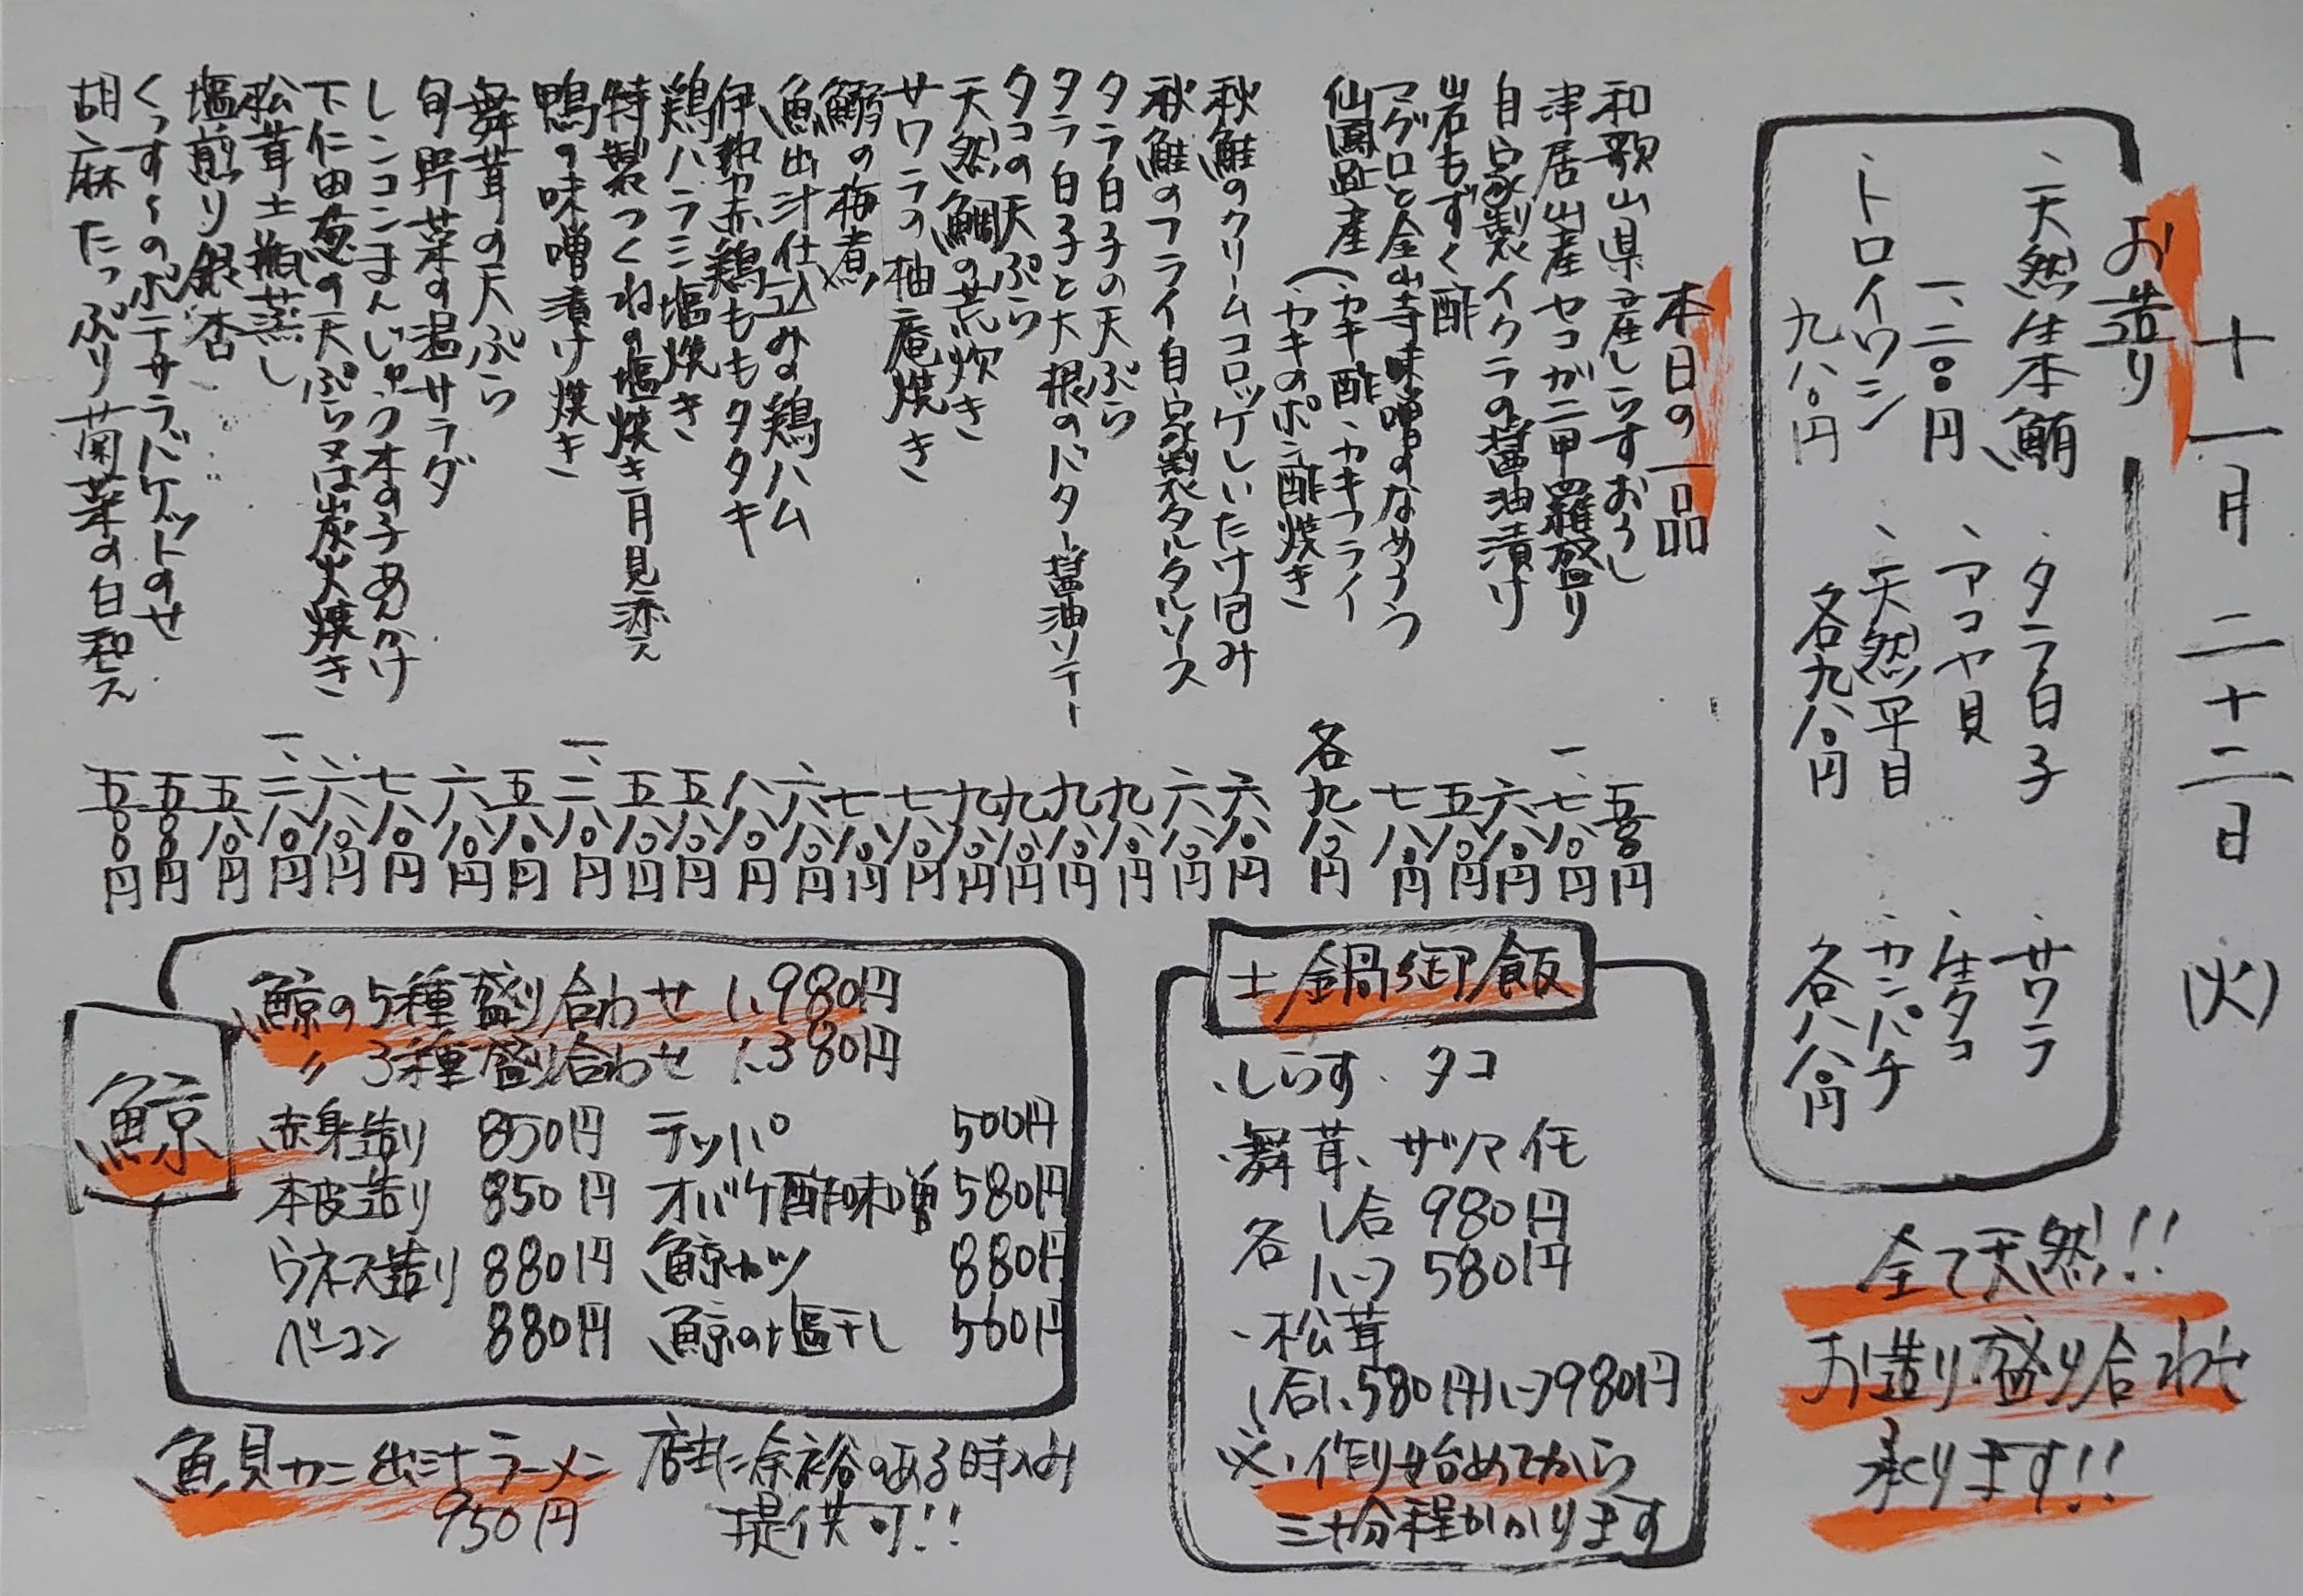 十一月二十二日(火)
お造り
、天然生本鮪
一、二〇〇円
、トロイワシ
九八〇円
、タラ白子
、アコヤ貝
、天然平目
各九八〇円
、サワラ
、生タコ
、カンパチ
各八八〇円
全て天然!!
お造り盛り合わせ
承ります!!
本日の一品
和歌山県産しらすおろし 五八〇円
津居山産セコガニ甲羅盛り 一、七八〇円
自家製イクラの醤油漬け 六八〇円
岩もずく酢 五八〇円
マグロと金山寺味噌のなめろう 七八〇円
仙鳳趾産(、カキ酢、カキフライ
、カキのポン酢焼き 各九八〇円
秋鮭のクリームコロッケしいたけ包み 六八〇円
秋鮭のフライ自家製タルタルソース 六八〇円
タラ白子の天ぷら 九八〇円
タラ白子と大根のバター醤油ソテー 九八〇円
タコの天ぷら 九八〇円
天然鯛の荒炊き 九八〇円
サワラの柚庵焼き 七八〇円
鰯の梅煮 七八〇円
魚出汁仕込みの鶏ハム 六八〇円
伊勢赤鶏ももタタキ 八八〇円
鶏ハラミ塩焼き 五八〇円
特製つくねの塩焼き月見添え 五八〇円
鴨の味噌漬け焼き 一、二八〇円
舞茸の天ぷら 五八〇円
旬野菜の温サラダ 六八〇円
レンコンまんじゅう本の子あんかけ 七八〇円
下仁田葱の天ぷら又は炭火焼き 六八〇円
松茸土瓶蒸し 一、二八〇円
塩煎り銀杏 五八〇円
くっす〜のポテサラバゲットのせ 五〇〇円
胡麻たっぷり菊菜の白和え 五〇〇円
土鍋御飯
、しらす、タコ
、舞茸、サツマ任
各 1合 980円
1/2 580円
、松茸
1合1,580円1/2 980円
※、作り始めてから
三十分程かかります
鯨
鯨の5種盛り合わせ 1,980円
〃 3種盛り合わせ 1,380円
赤身造り 850円 テッパ 500円
本皮造り 850円 オバケ酢味噌 580円
ウネス造り 880円 鯨カツ 880円
ベーコン 880円 鯨の塩干し 560円
魚貝カニ出汁ラーメン
950円
店主に余裕のある時のみ
提供可!!